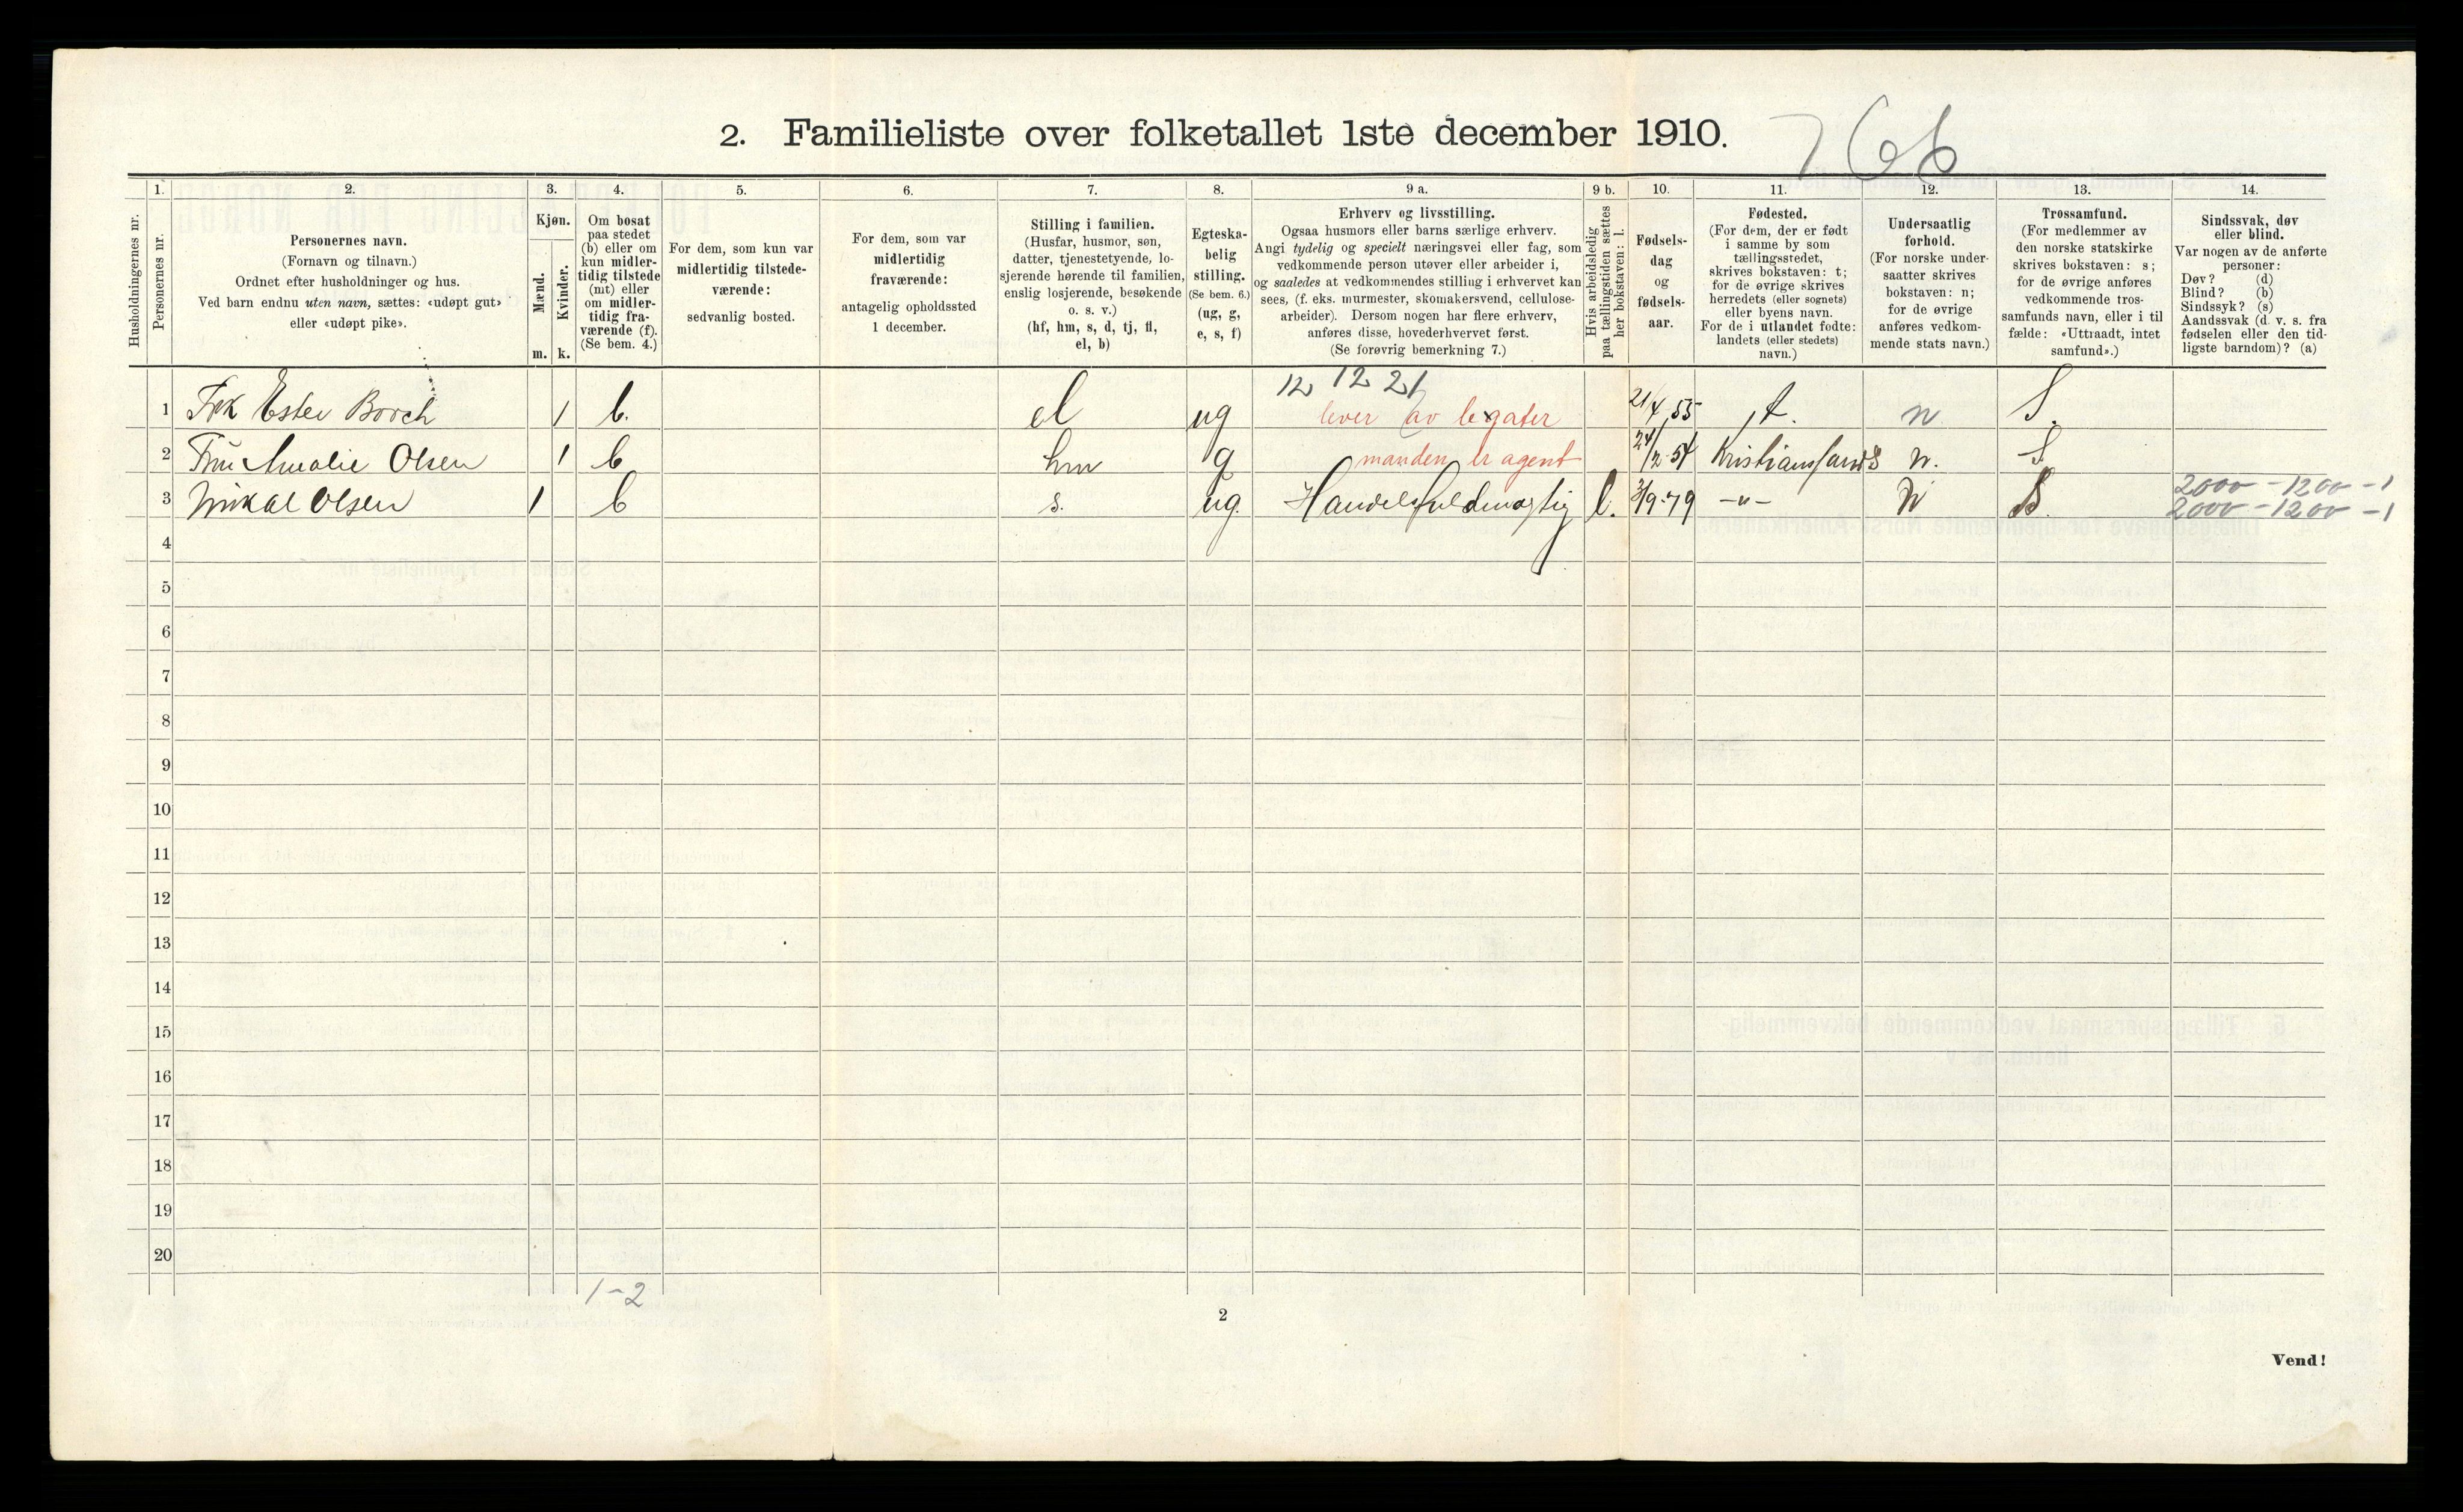 2. Familieliste over folketallet 1ste december 1910.
766
1. 2. 3. 4. 5. 6. 7. 8. 9 a. 9 b. 10. 11. 12. 13. 14.
Husholdningernes nr.
Personernes nr.
Personernes navn.
(Fornavn og tilnavn.)
Ordnet efter husholdninger og hus.
Ved barn endnu uten navn, sættes: «udøpt gut»
eller «udøpt pike».
Kjøn.
Mænd.
Kvinder.
m. k.
Om bosat
paa stedet
(b) eller om
kun midler-
tidig tilstede
(mt) eller
om midler-
tidig fra-
værende (f).
(Se bem. 4.)
For dem, som kun var
midlertidig tilstede-
værende:
sedvanlig bosted.
For dem, som var
midlertidig
fraværende:
antagelig opholdssted
1 december.
Stilling i familien.
(Husfar, husmor, søn,
datter, tjenestetyende, lo-
sjerende hørende til familien,
enslig losjerende, besøkende
o. s. v.)
(hf, hm, s, d, tj, fl,
el, b)
Egteska-
belig
stilling.
(Se bem. 6.)
(ug, g,
e, s, f)
Erhverv og livsstilling.
Ogsaa husmors eller barns særlige erhverv.
Angi tydelig og specielt næringsvei eller fag, som
vedkommende person utøver eller arbeider i,
og saaledes at vedkommendes stilling i erhvervet kan
sees, (f. eks. murmester, skomakersvend, cellulose-
arbeider). Dersom nogen har flere erhverv,
anføres disse, hovederhvervet først.
(Se forøvrig bemerkning 7.)
Hvis arbeidsledig
paa tællingstiden sættes
her bokstaven: l.
Fødsels-
dag
og
fødsels-
aar.
Fødested.
(For dem, der er født
i samme by som
tællingsstedet,
skrives bokstaven: t;
for de øvrige skrives
herredets (eller sognets)
eller byens navn.
For de i utlandet fødte:
landets (eller stedets)
navn.)
Undersaatlig
forhold.
(For norske under-
saatter skrives
bokstaven: n;
for de øvrige
anføres vedkom-
mende stats navn.)
Trossamfund.
(For medlemmer av
den norske statskirke
skrives bokstaven: s;
for de øvrige anføres
vedkommende tros-
samfunds navn, eller i til
fælde: «Uttraadt, intet
samfund».)
Sindssvak, døv
eller blind.
Var nogen av de anførte
personer:
Døv? (d)
Blind? (b)
Sindssyk? (s)
Aandssvak (d. v. s. fra
fødselen eller den tid-
ligste barndom)? (a)
12 12 21
1 Frk Ester Borch 1 b. el ug lever av legater 21/4 55 t. n S.
2 Fru Amalie Olsen 1 b hm g manden er agent 24/12 54 Kristianssands n. S
2000 - 1200 - 1
3 Mikal Olsen 1 b s. ug. Handelsfuldmægtig l. 3/9-79 -"- N S.
2000 - 1200 - 1
4
5
6
7
8
9
10
11
12
13
14
15
16
17
18
19
20
1-2
2
Vend!